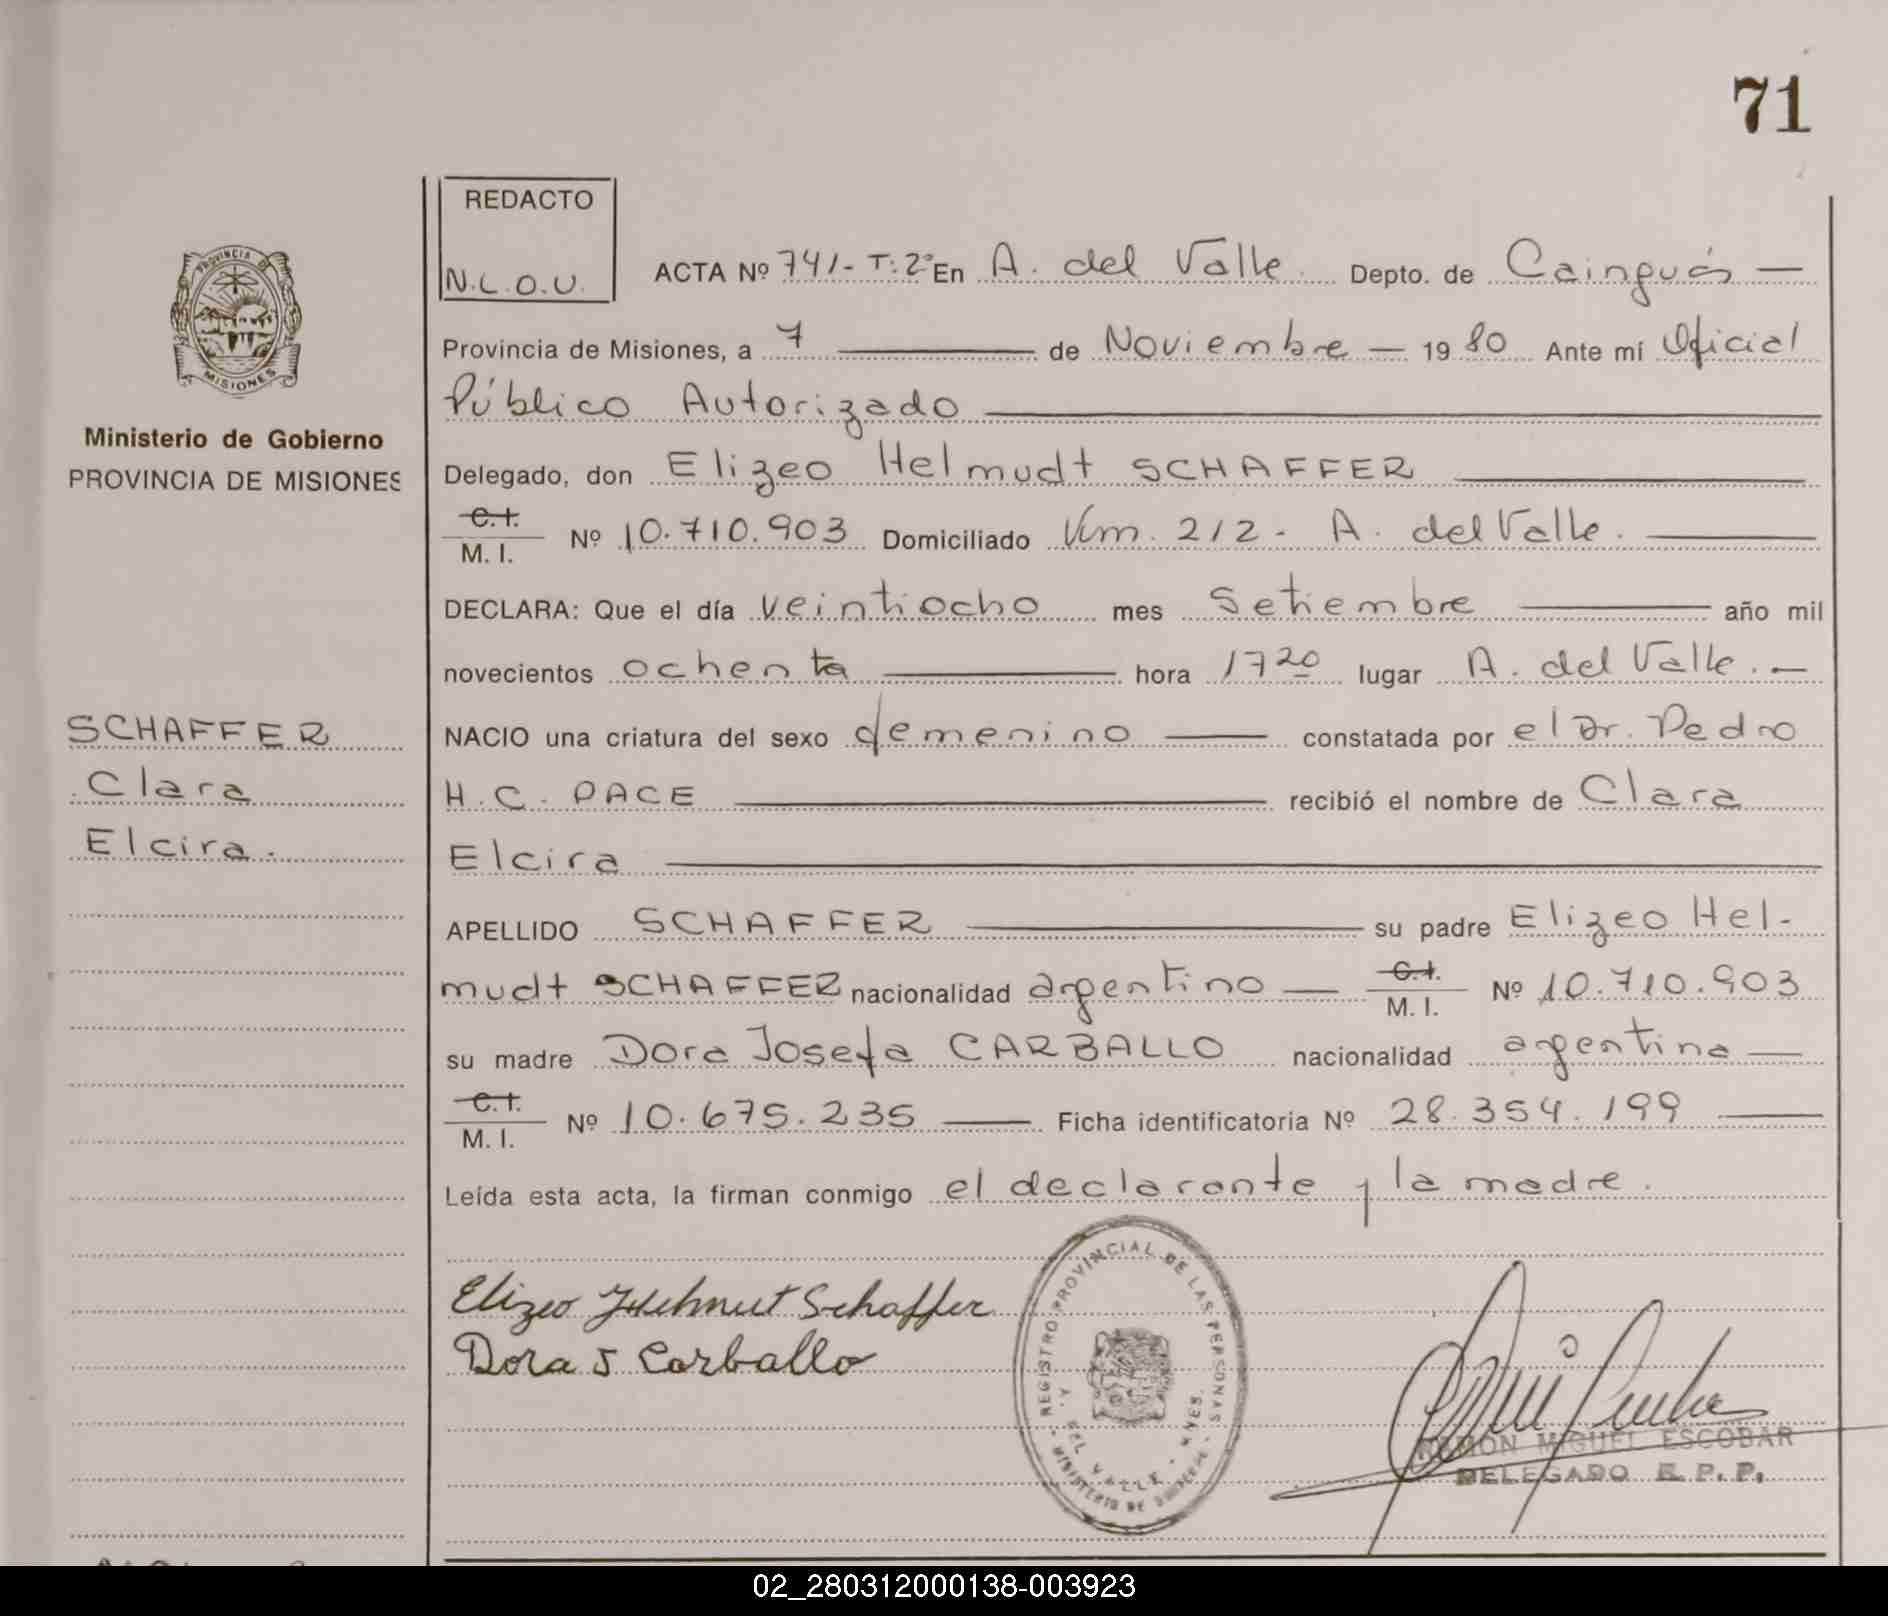 71
REDACTO
N.L.O.U.
PROVINCIA DE
MISIONES
Ministerio de Gobierno
PROVINCIA DE MISIONES
ACTA Nº 741- T: 2º En A. del Valle. Depto. de Cainguás —
Provincia de Misiones, a 7 — de Noviembre — 19 80 Ante mí Oficial
Público Autorizado —
Delegado, don Elizeo Helmudt SCHAFFER —
C.I. / M. I. Nº 10.710.903 Domiciliado Km. 212 - A. del Valle. —
DECLARA: Que el día veintiocho mes Setiembre — año mil
novecientos ochenta — hora 17 20 lugar A. del Valle. —
SCHAFFER
Clara
Elcira.
NACIO una criatura del sexo femenino — constatada por el Dr. Pedro
H. C. PACE — recibió el nombre de Clara
Elcira —
APELLIDO SCHAFFER — su padre Elizeo Hel-
mudt SCHAFFER nacionalidad argentino — C.I. / M. I. Nº 10.710.903
su madre Dora Josefa CARBALLO nacionalidad argentina —
C.I. / M. I. Nº 10.675.235 — Ficha identificatoria Nº 28.354.199 —
Leída esta acta, la firman conmigo el declarante y la madre.
Elizeo Helmut Schaffer
Dora J Carballo
REGISTRO PROVINCIAL DE LAS PERSONAS
DEL VALLE - MNES.
MINISTERIO DE GOBIERNO
RAMON MIGUEL ESCOBAR
DELEGADO R. P. P.
02_280312000138-003923